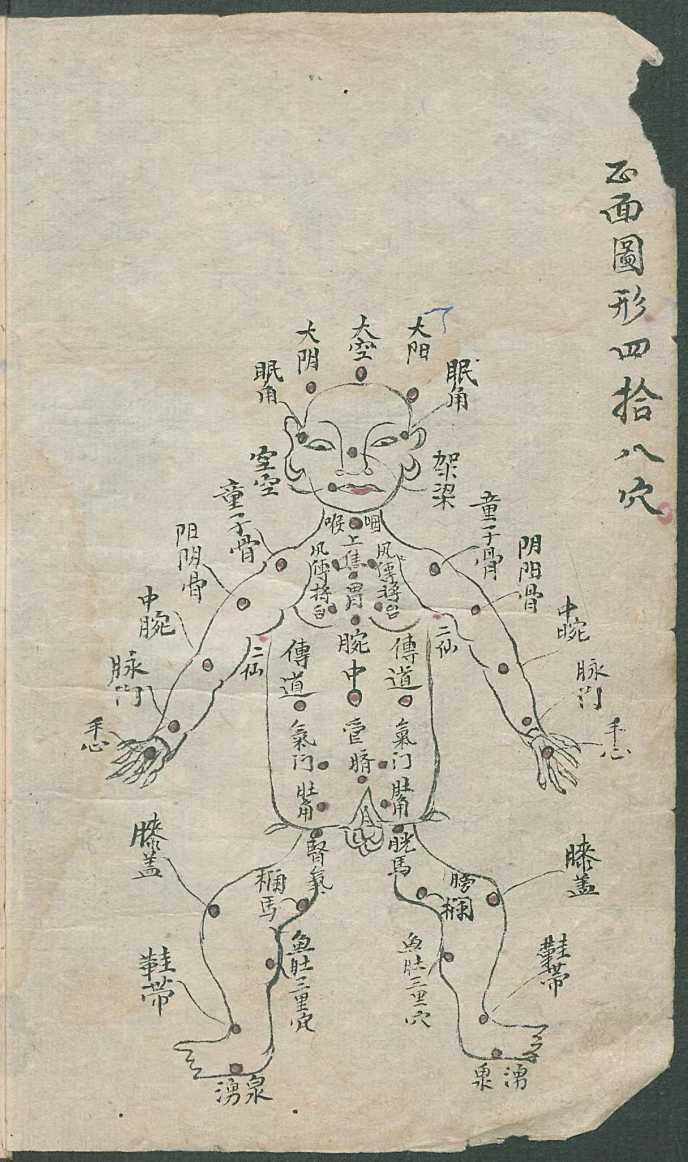 正面圖形四拾八穴
太阳
太空
太阴
眠角
眠角
架梁
空空
童子骨
童子骨
咽
喉
上焦
胃
腕
中
管
脐
风傳将台
风傳将台
阴阳骨
阳阴骨
中腕
中腕
脉门
脉门
手心
手心
二仙
二仙
傳道
傳道
氣门
氣门
肚角
肚角
腎氣
膀
膝盖
膝盖
鞋带
鞋带
鱼肚三里穴
鱼肚三里穴
湧泉
湧泉